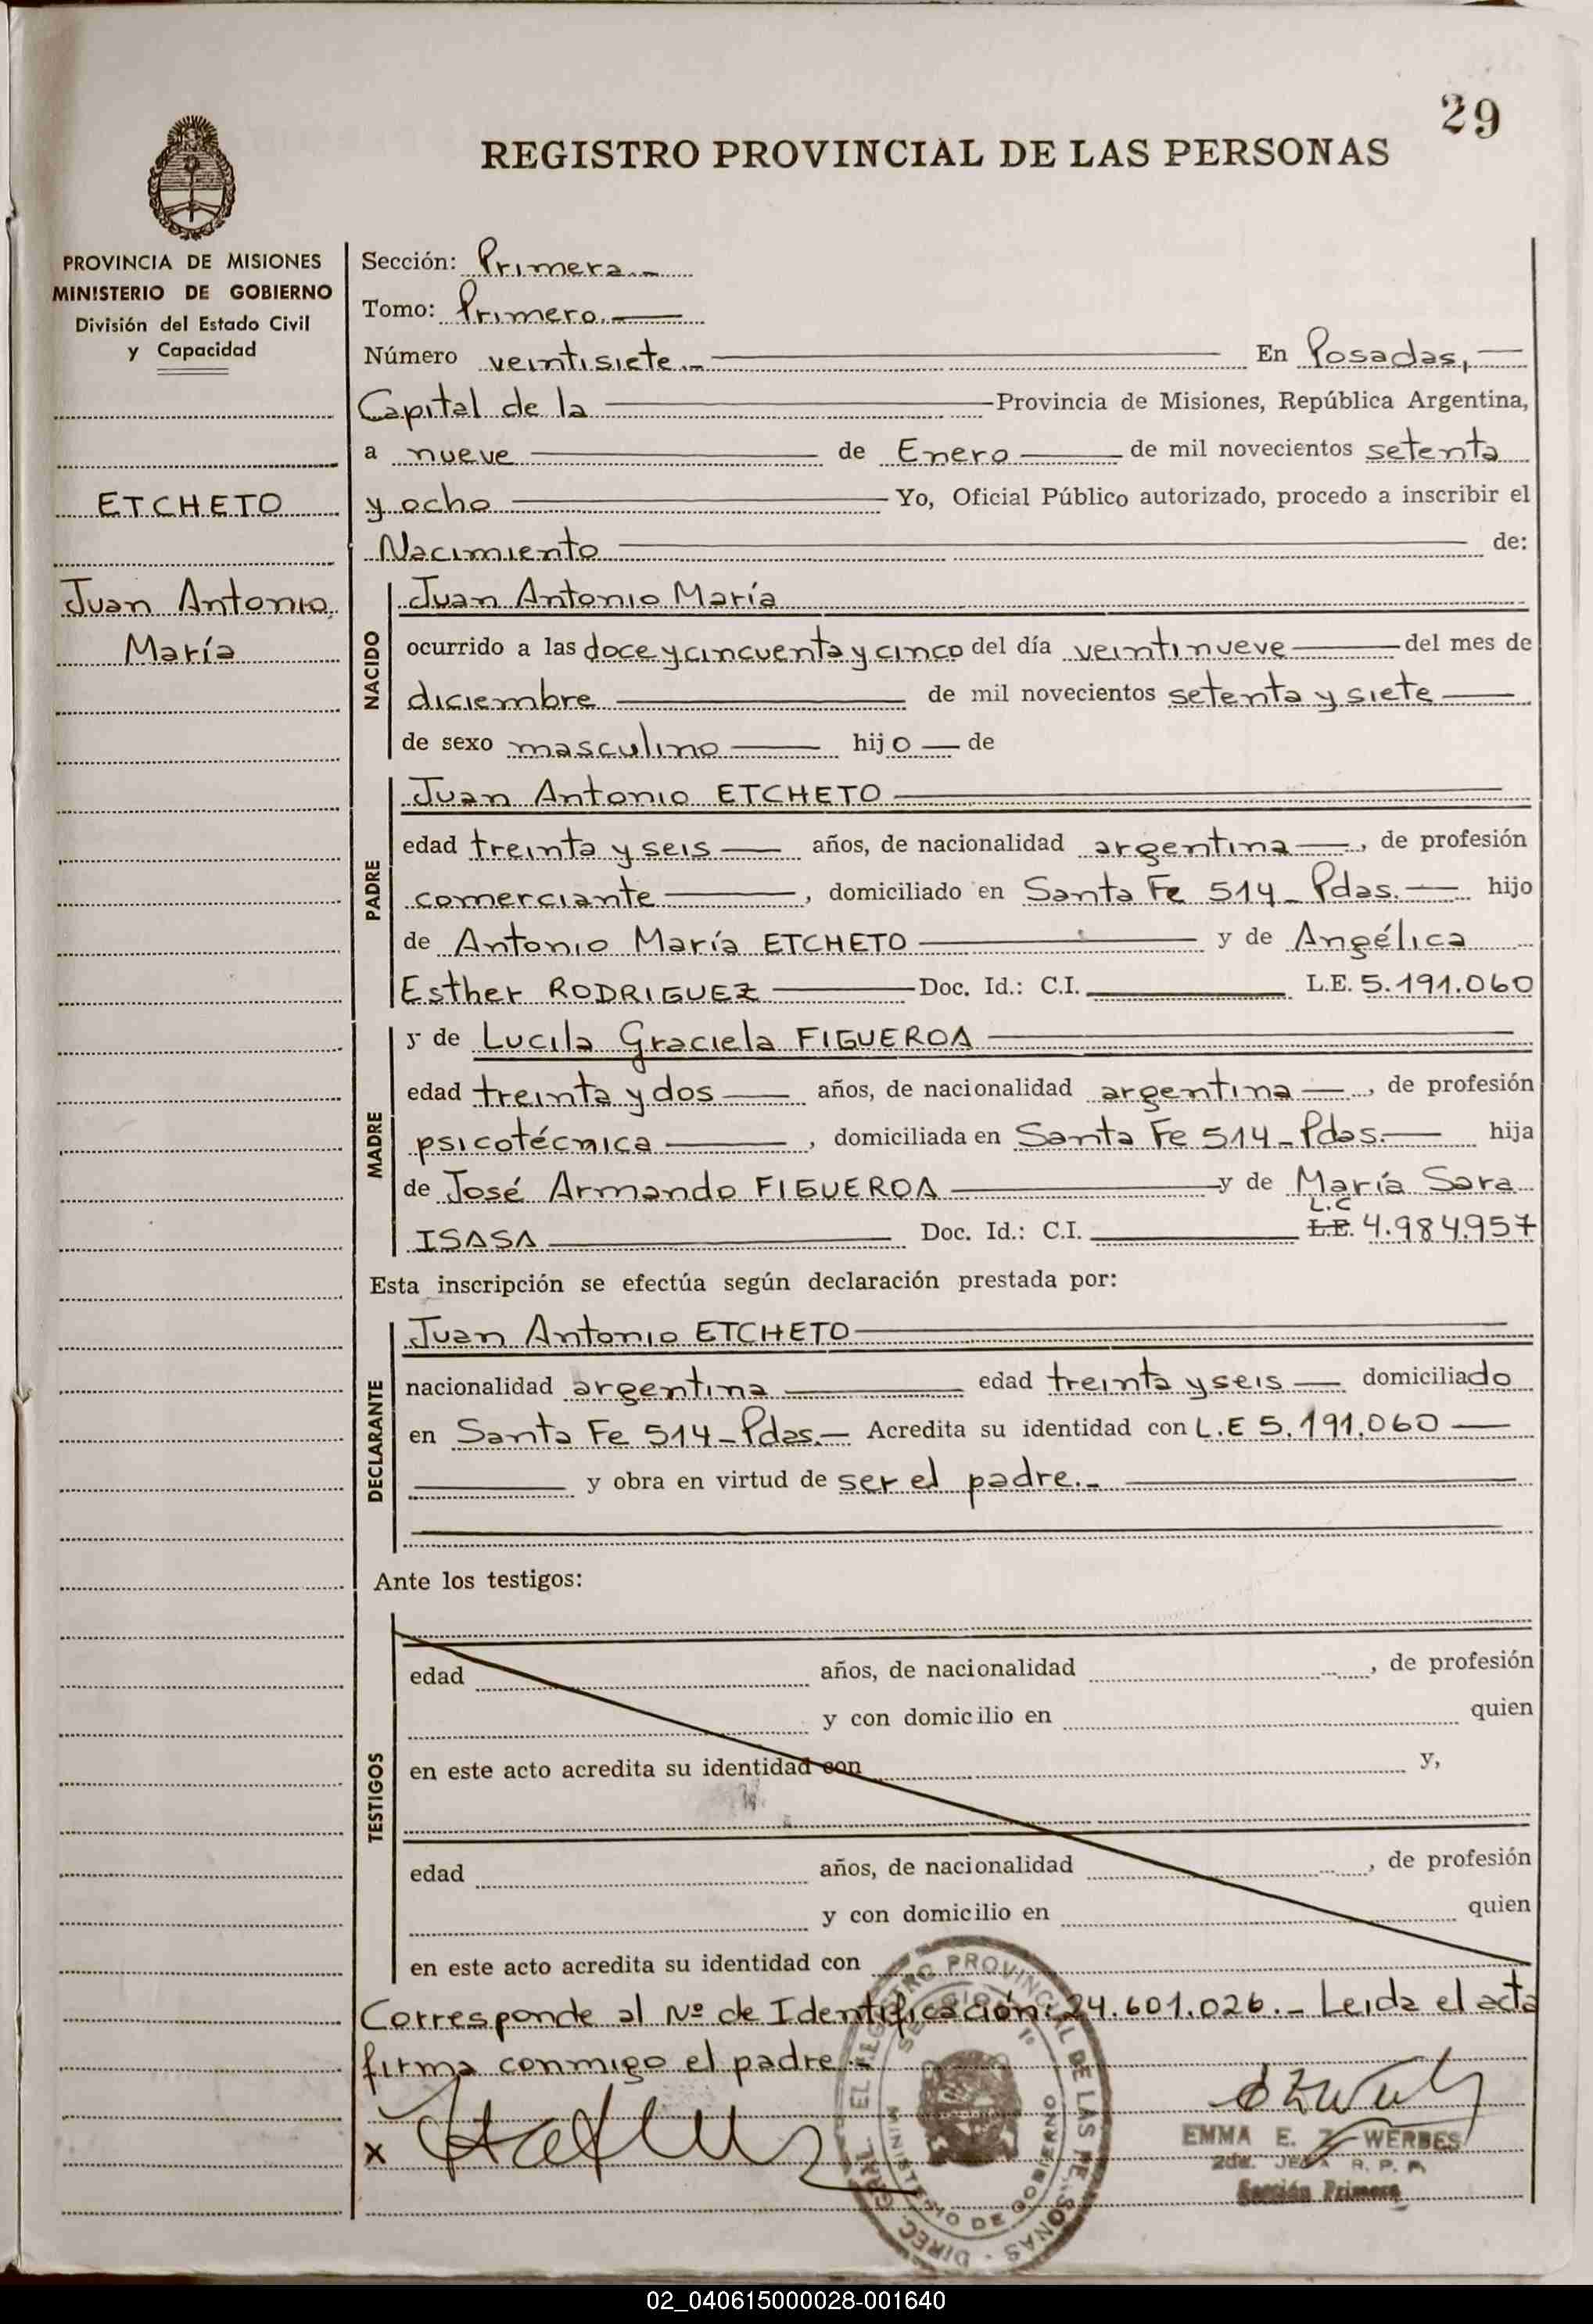 29
REGISTRO PROVINCIAL DE LAS PERSONAS
PROVINCIA DE MISIONES
MINISTERIO DE GOBIERNO
División del Estado Civil
y Capacidad
ETCHETO
Juan Antonio
María
Sección: Primera.-
Tomo: Primero.
Número veintisiete.- En Posadas,
Capital de la Provincia de Misiones, República Argentina,
a nueve de Enero de mil novecientos setenta
y ocho Yo, Oficial Público autorizado, procedo a inscribir el
Nacimiento de:
NACIDO
Juan Antonio María
ocurrido a las doce y cincuenta y cinco del día veintinueve del mes de
diciembre de mil novecientos setenta y siete
de sexo masculino hijo de
PADRE
Juan Antonio ETCHETO
edad treinta y seis años, de nacionalidad argentina, de profesión
comerciante, domiciliado en Santa Fe 514_ Pdas. hijo
de Antonio María ETCHETO y de Angélica
Esther RODRIGUEZ Doc. Id.: C.I. L.E. 5.191.060
MADRE
y de Lucila Graciela FIGUEROA
edad treinta y dos años, de nacionalidad argentina, de profesión
psicotécnica, domiciliada en Santa Fe 514_ Pdas. hija
de José Armando FIGUEROA y de María Sara
L.C
ISASA Doc. Id.: C.I. L.E. 4.984.957
Esta inscripción se efectúa según declaración prestada por:
DECLARANTE
Juan Antonio ETCHETO
nacionalidad argentina edad treinta y seis domiciliado
en Santa Fe 514_ Pdas. Acredita su identidad con L.E 5.191.060
y obra en virtud de ser el padre.-
Ante los testigos:
TESTIGOS
edad años, de nacionalidad , de profesión
y con domicilio en quien
en este acto acredita su identidad con y,
edad años, de nacionalidad , de profesión
y con domicilio en quien
en este acto acredita su identidad con
Corresponde al Nº de Identificación: 24.601.026.- Leida el acta
firma conmigo el padre.-
x
DIREC. GRAL. DEL REGISTRO PROVINCIAL DE LAS PERSONAS
MINISTERIO DE GOBIERNO
EMMA E. WERBES
2da. JEFA R. P. P.
Sección Primera
02_040615000028-001640